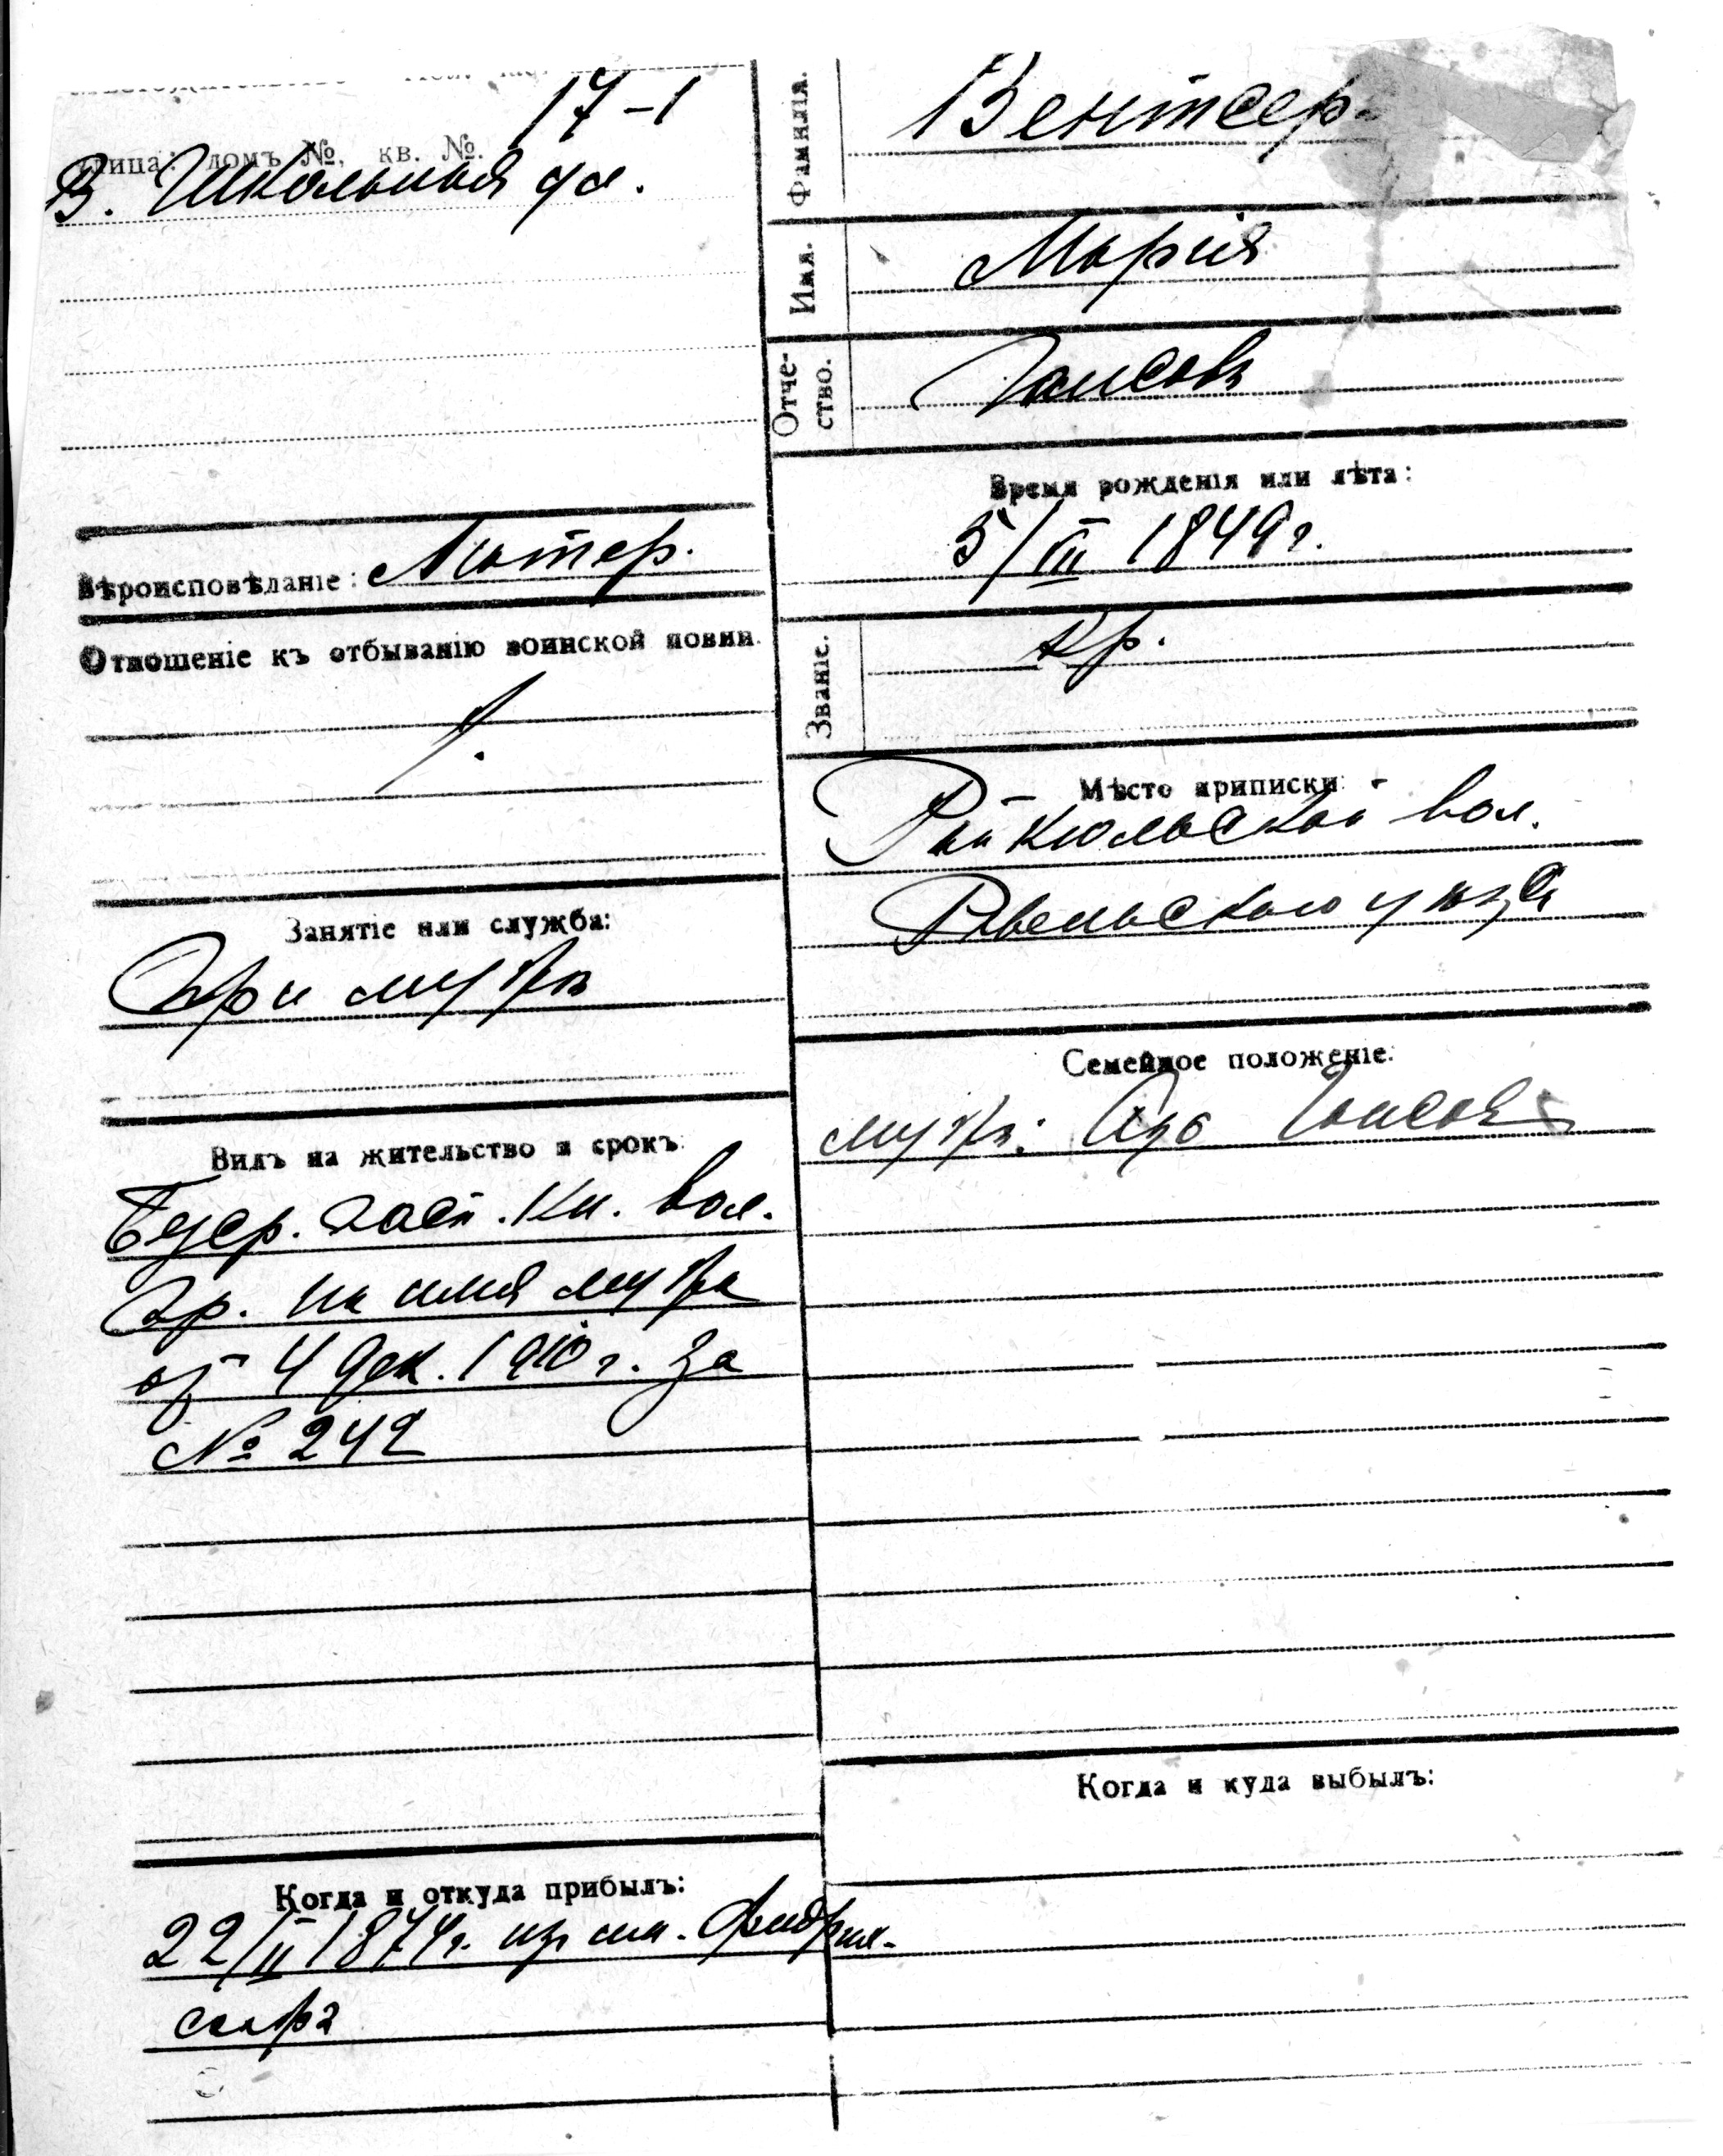 17-1
улица: домъ №, кв. №.
В. Школьная ул.
Вѣроисповѣданіе: Лютер.
Отношеніе къ отбыванію воинской повин.
Занятіе или служба:
При мужѣ
Видъ на жительство и срокъ:
Безср. пасп. кн. вол.
пр. на имя мужа
от 4 дек. 1910 г. за
№ 242
Когда и откуда прибылъ:
22/II 1874 г. из им.
Фамилія. Вентсер
Имя. Марія
Отчество. Гансовъ
Время рожденія или лѣта:
5/III 1849 г.
Званіе. Кр.
Мѣсто приписки:
Райкюльской вол.
Ревельского уѣзда
Семейное положеніе:
мужъ: Гансов
Когда и куда выбылъ: